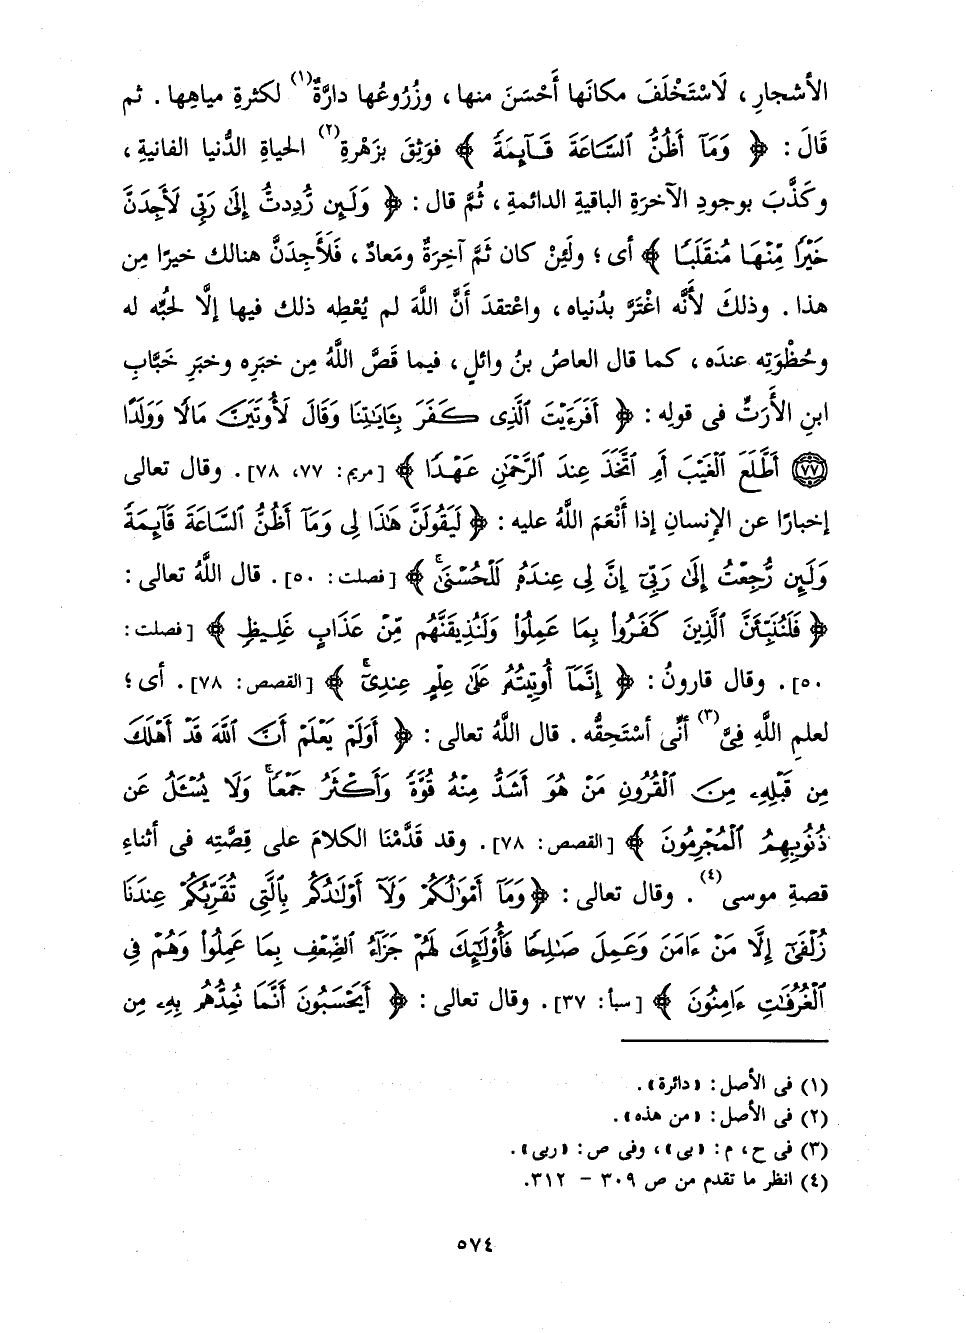 الأشجارِ، لَاسْتَخْلَفَ مكانَها أَحْسَنَ منها، وزُرُوعُها دارَّةٌ(١) لكثرةِ مياهِها. ثم
قَالَ: ﴿ وَمَآ أَظُنُّ ٱلسَّاعَةَ قَآئِمَةً ﴾ فوَثِقَ بزَهْرةِ(٢) الحياةِ الدُّنيا الفانيةِ،
وكَذَّبَ بوجودِ الآخرَةِ الباقيةِ الدائمةِ، ثُمَّ قال: ﴿ وَلَئِن رُّدِدتُّ إِلَىٰ رَبِّى لَأَجِدَنَّ
خَيْرًا مِّنْهَا مُنقَلَبًا ﴾ أى؛ ولَئِنْ كان ثَمَّ آخِرَةٌ ومَعادٌ، فَلَأَجِدَنَّ هنالك خيرًا مِن
هذا. وذلكَ لأنَّه اغْتَرَّ بدُنياه، واعْتقدَ أَنَّ اللَّهَ لم يُعْطِه ذلك فيها إلَّا لحُبِّه له
وحُظْوَتِه عندَه، كما قال العاصُ بنُ وائلٍ، فيما قَصَّ اللَّهُ مِن خبَرِه وخبَرِ خَبَّابِ
ابنِ الأَرَتِّ فى قولِه: ﴿ أَفَرَءَيْتَ ٱلَّذِى كَفَرَ بِـَٔايَـٰتِنَا وَقَالَ لَأُوتَيَنَّ مَالًا وَوَلَدًا
(٧٧) أَطَّلَعَ ٱلْغَيْبَ أَمِ ٱتَّخَذَ عِندَ ٱلرَّحْمَـٰنِ عَهْدًا ﴾ [مريم: ٧٧، ٧٨]. وقال تعالى
إخبارًا عن الإنسانِ إذا أَنْعَمَ اللَّهُ عليه: ﴿ لَيَقُولَنَّ هَـٰذَا لِى وَمَآ أَظُنُّ ٱلسَّاعَةَ قَآئِمَةً
وَلَئِن رُّجِعْتُ إِلَىٰ رَبِّىٓ إِنَّ لِى عِندَهُۥ لَلْحُسْنَىٰ ﴾ [فصلت: ٥٠]. قال اللَّهُ تعالى:
﴿ فَلَنُنَبِّئَنَّ ٱلَّذِينَ كَفَرُوا۟ بِمَا عَمِلُوا۟ وَلَنُذِيقَنَّهُم مِّنْ عَذَابٍ غَلِيظٍ ﴾ [فصلت:
٥٠]. وقال قارونُ: ﴿ إِنَّمَآ أُوتِيتُهُۥ عَلَىٰ عِلْمٍ عِندِىٓ ﴾ [القصص: ٧٨]. أى؛
لعلمِ اللَّهِ فِىَّ(٣) أنِّى أسْتَحِقُّه. قال اللَّهُ تعالى: ﴿ أَوَلَمْ يَعْلَمْ أَنَّ ٱللَّهَ قَدْ أَهْلَكَ
مِن قَبْلِهِۦ مِنَ ٱلْقُرُونِ مَنْ هُوَ أَشَدُّ مِنْهُ قُوَّةً وَأَكْثَرُ جَمْعًا وَلَا يُسْـَٔلُ عَن
ذُنُوبِهِمُ ٱلْمُجْرِمُونَ ﴾ [القصص: ٧٨]. وقد قَدَّمْنَا الكلامَ على قِصَّتِه فى أثناءِ
قصةِ موسى(٤). وقال تعالى: ﴿وَمَآ أَمْوَٰلُكُمْ وَلَآ أَوْلَـٰدُكُم بِٱلَّتِى تُقَرِّبُكُمْ عِندَنَا
زُلْفَىٰٓ إِلَّا مَنْ ءَامَنَ وَعَمِلَ صَـٰلِحًا فَأُو۟لَـٰٓئِكَ لَهُمْ جَزَآءُ ٱلضِّعْفِ بِمَا عَمِلُوا۟ وَهُمْ فِى
ٱلْغُرُفَـٰتِ ءَامِنُونَ ﴾ [سبأ: ٣٧]. وقال تعالى: ﴿ أَيَحْسَبُونَ أَنَّمَا نُمِدُّهُم بِهِۦ مِن
(١) فى الأصل: «دائرة».
(٢) فى الأصل: «من هذه».
(٣) فى ح، م: «بى»، وفى ص: «ربى».
(٤) انظر ما تقدم من ص ٣٠٩ - ٣١٢.
٥٧٤